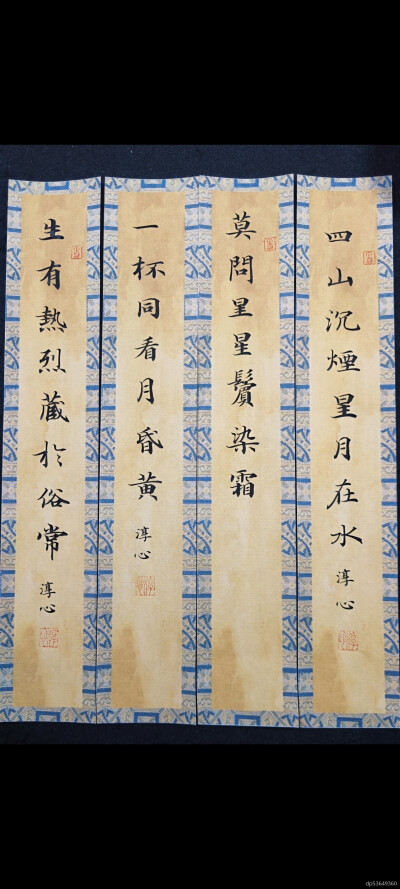 四山沉煙星月在水
淳心
莫問星星鬢染霜
一杯同看月昏黃
淳心
生有熱烈藏於俗常
淳心
dp53649360